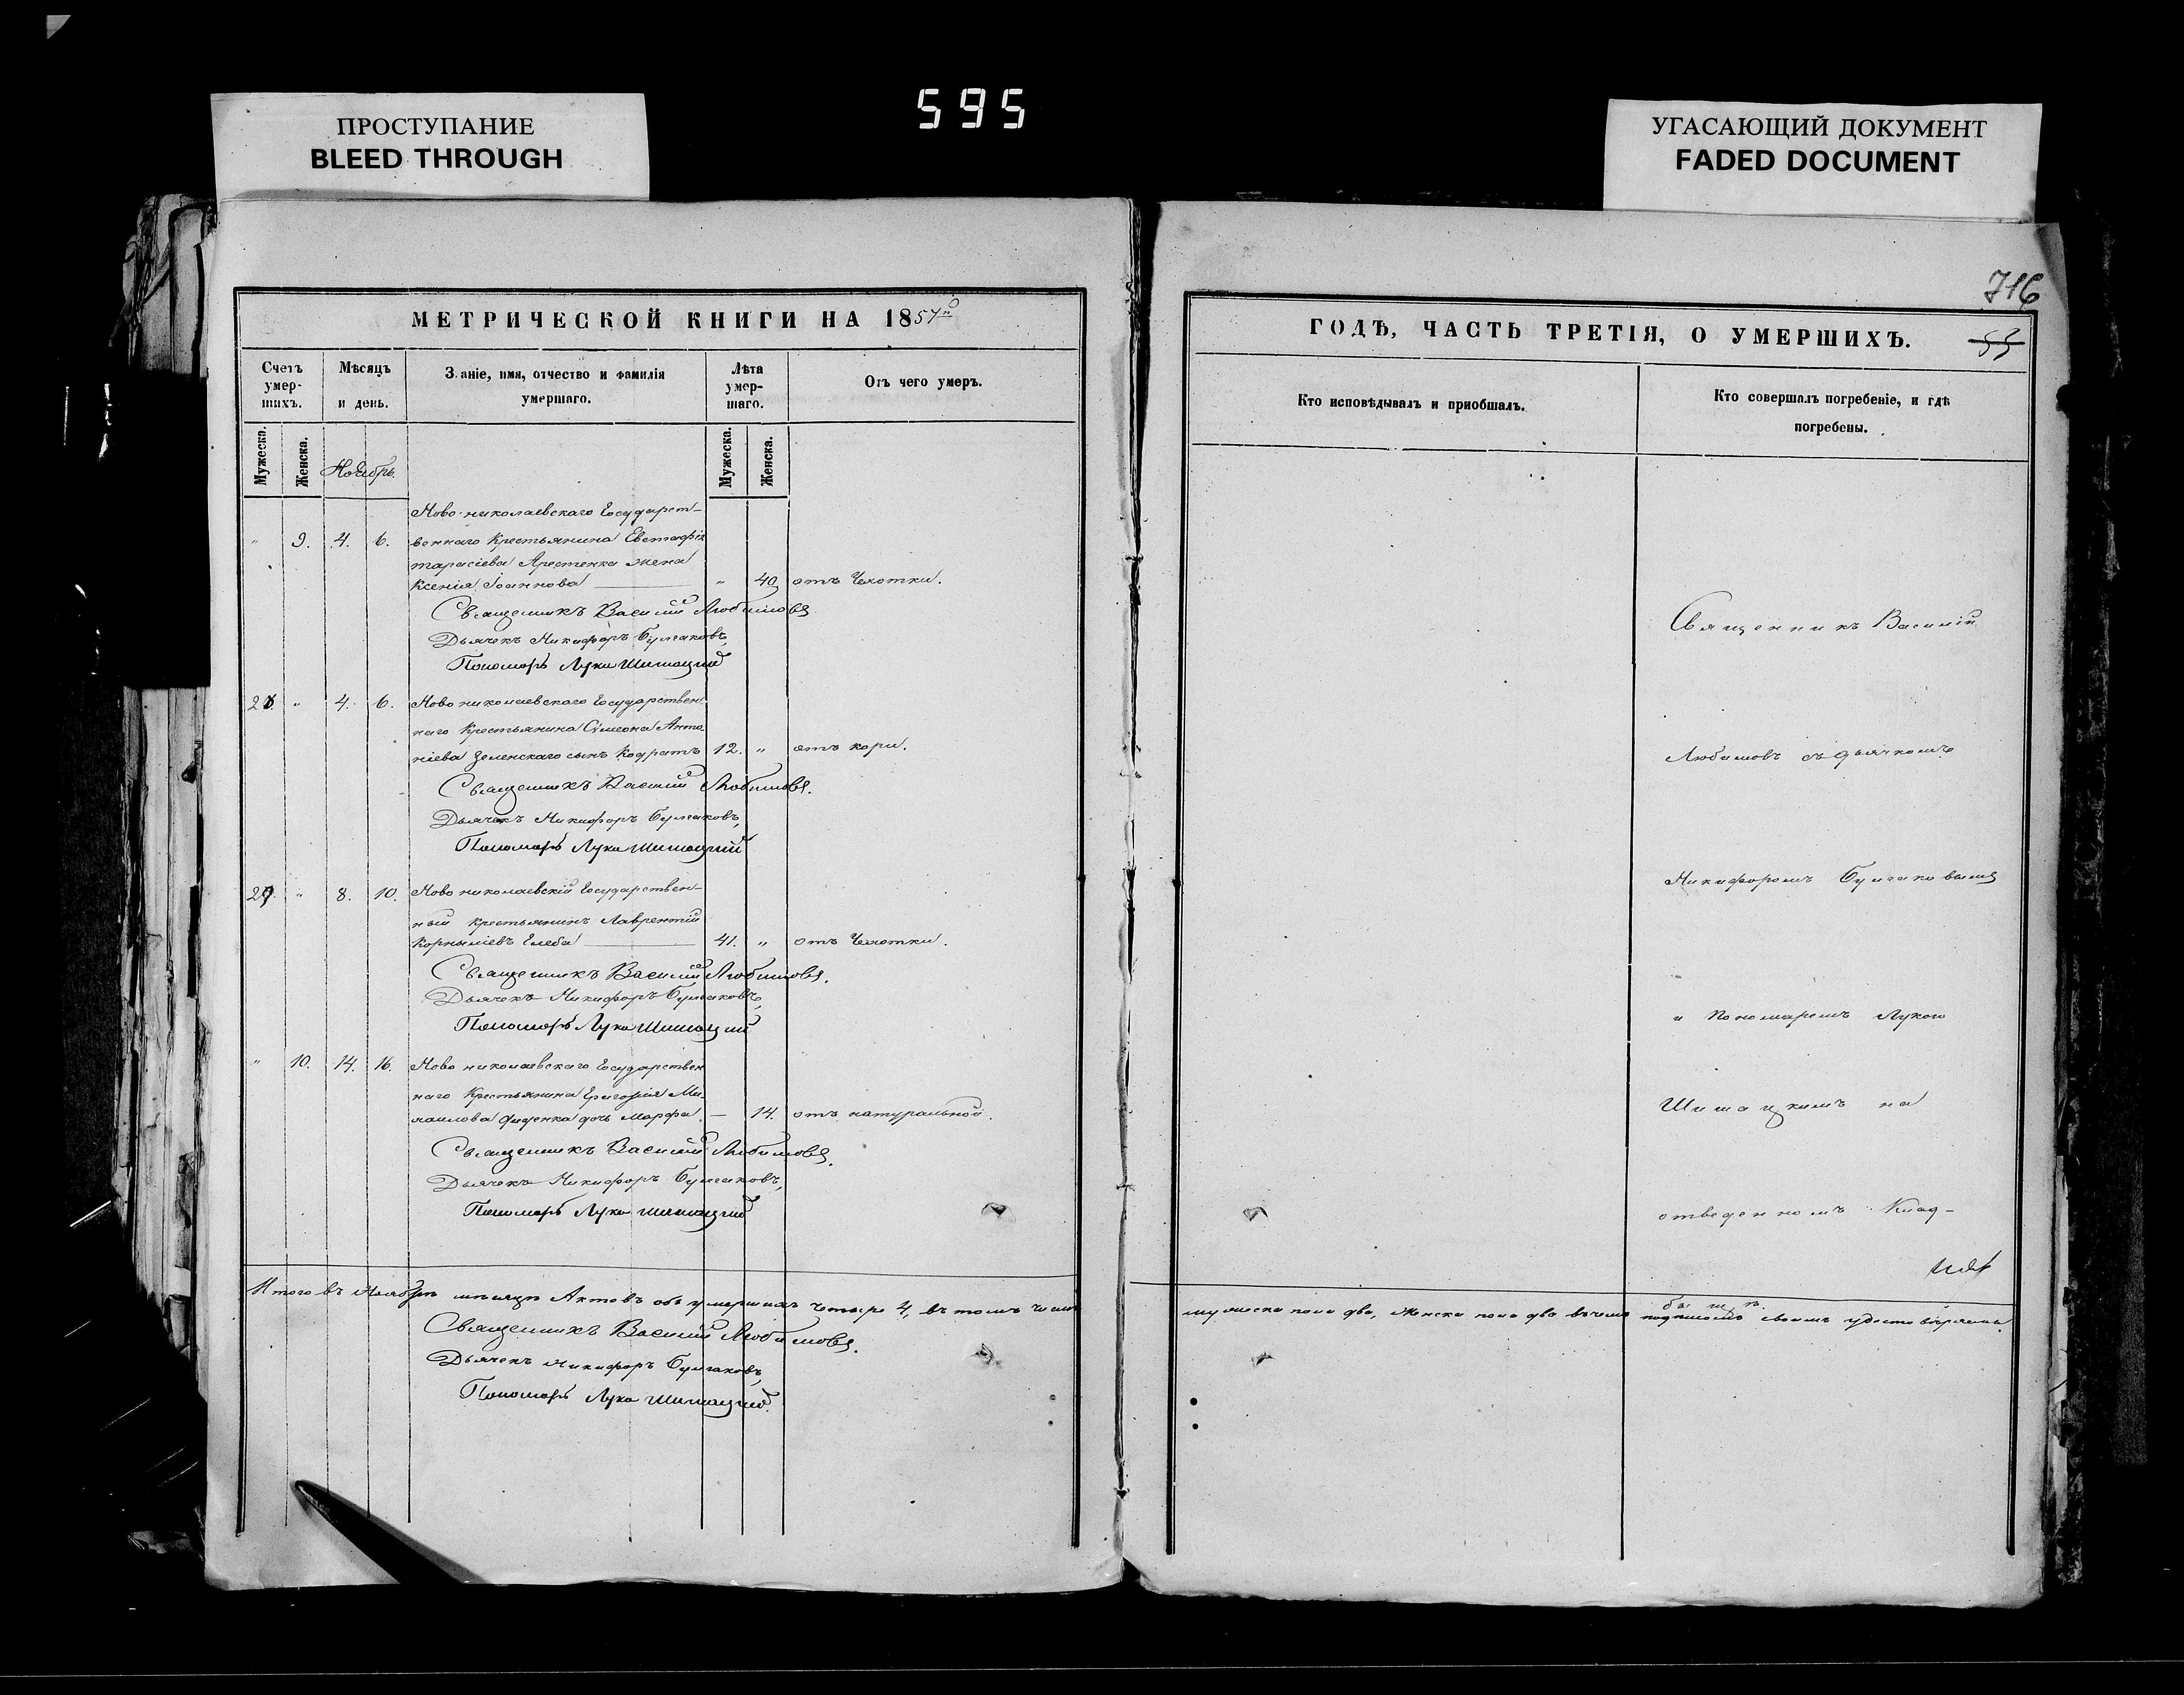 595
ПРОСТУПАНИЕ
BLEED THROUGH
УГАСАЮЩИЙ ДОКУМЕНТ
FADED DOCUMENT
МЕТРИЧЕСКОЙ КНИГИ НА 1857
Счетъ умер-шихъ.
Мѣсяцъ и день.
Званіе, имя, отчество и фамилія умершаго.
Лѣта умер-шаго.
Отъ чего умеръ.
Мужеска.
Женска.
Ноябрь.
Мужеска.
Женска.
Ново-николаевскаго Государст-
" 9. 4. 6. веннаго Крестьянина Евстафія
тарасіева Арестенка жена
Ксенія Іоаннова " 40 отъ Чахотки.
Священникъ Василій Любимовъ
Дьячекъ Никифоръ Булгаковъ,
Пономарь Лука Шишацкий
" 4. 6. Ново николаевскаго Государствен-
наго Крестьянина Сімеона Анто-
ніева Зеленскаго сынъ Кодратъ 12. " отъ кори.
Священникъ Василій Любимовъ.
Дьячекъ Никифоръ Булгаковъ,
Пономарь Лука Шишацкий
" 8. 10. Ново николаевскій Государствен-
ный крестьянинъ Лаврентій
Корниліевъ 41. " отъ Чахотки.
Священникъ Василій Любимовъ.
Дьячекъ Никифоръ Булгаковъ,
Пономарь Лука Шишацкий
" 10. 14. 16. Ново николаевскаго Государствен
наго Крестьянина Григорія Ми-
хаилова дочь Марфа — 14. отъ натуральной.
Священникъ Василій Любимовъ.
Дьячекъ Никифоръ Булгаковъ,
Пономарь Лука Шишацкий
Итого въ Ноябрѣ мѣсяцѣ Актовъ объ умершихъ четыре 4, въ томъ числѣ
Священникъ Василій Любимовъ.
Дьячекъ Никифоръ Булгаковъ,
Пономарь Лука Шишацкий.
716
ГОДЪ, ЧАСТЬ ТРЕТІЯ, О УМЕРШИХЪ.
53
Кто исповѣдывалъ и пріобщалъ.
Кто совершалъ погребеніе, и гдѣ погребены.
Священникъ Василій
Любимовъ съ дьячкомъ
Никифоромъ Булгаковымъ
и Пономаремъ Лукою
Шишацкимъ на
отведенномъ Клад-
бищѣ.
мужеска пола два, женска пола два въ чемъ подписомъ своимъ удостовѣряемъ.